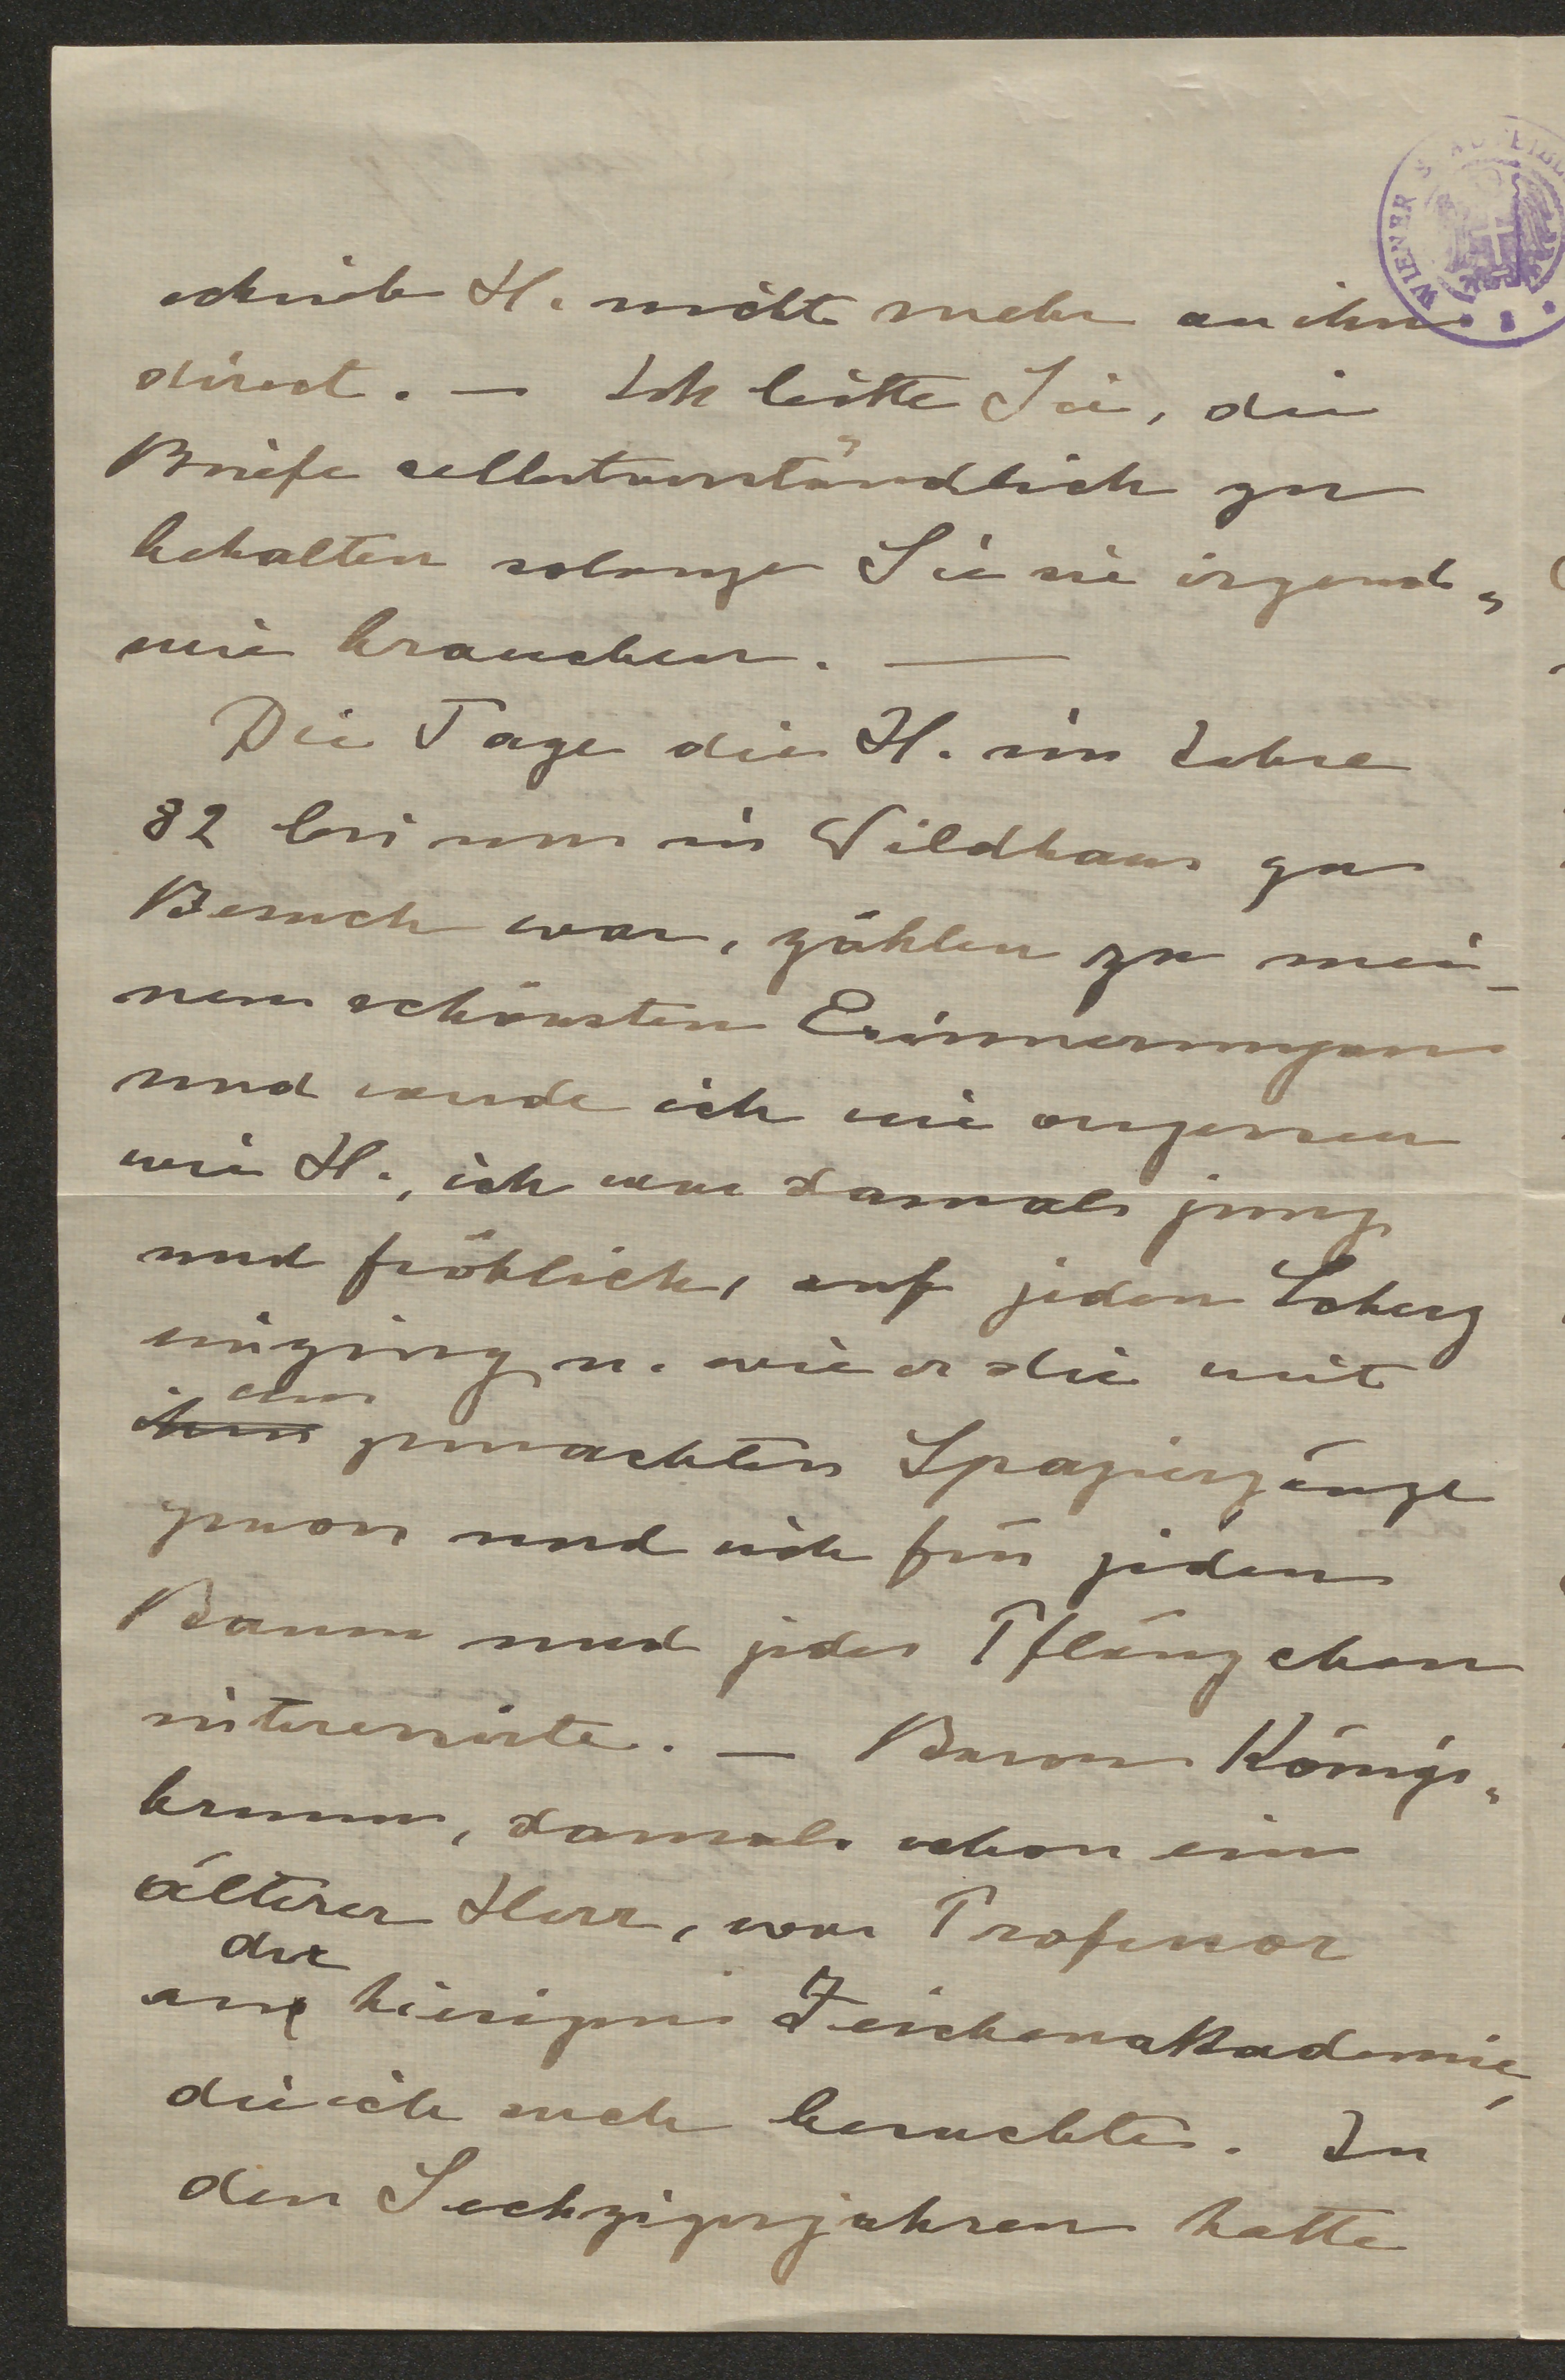 WIENER STADTBIBL
schrieb H. nicht mehr an ihn
direct. — Ich bitte Sie, die
Briefe selbstverständlich zu
behalten solange Sie sie irgend„
wie brauchen. —
Die Tage die H. im Jahre
82 bei uns in Wildhaus zu
Besuch war, zählen zu mei-
nen schönsten Erinnerungen
und werde ich nie vergessen
wie H., ich war damals jung
und fröhlich, auf jeden Scherz
einging u. wie er die mit
uns
ihm gemachten Spaziergänge
genoss und sich für jeden
Baum und jedes Pflänzchen
interessirte. — Baron Königs„
brunn, damals schon ein
älterer Herr, war Professor
der
an hiesigen Zeichenakademie,
die ich auch besuchte. In
den Sechzigerjahren hatte